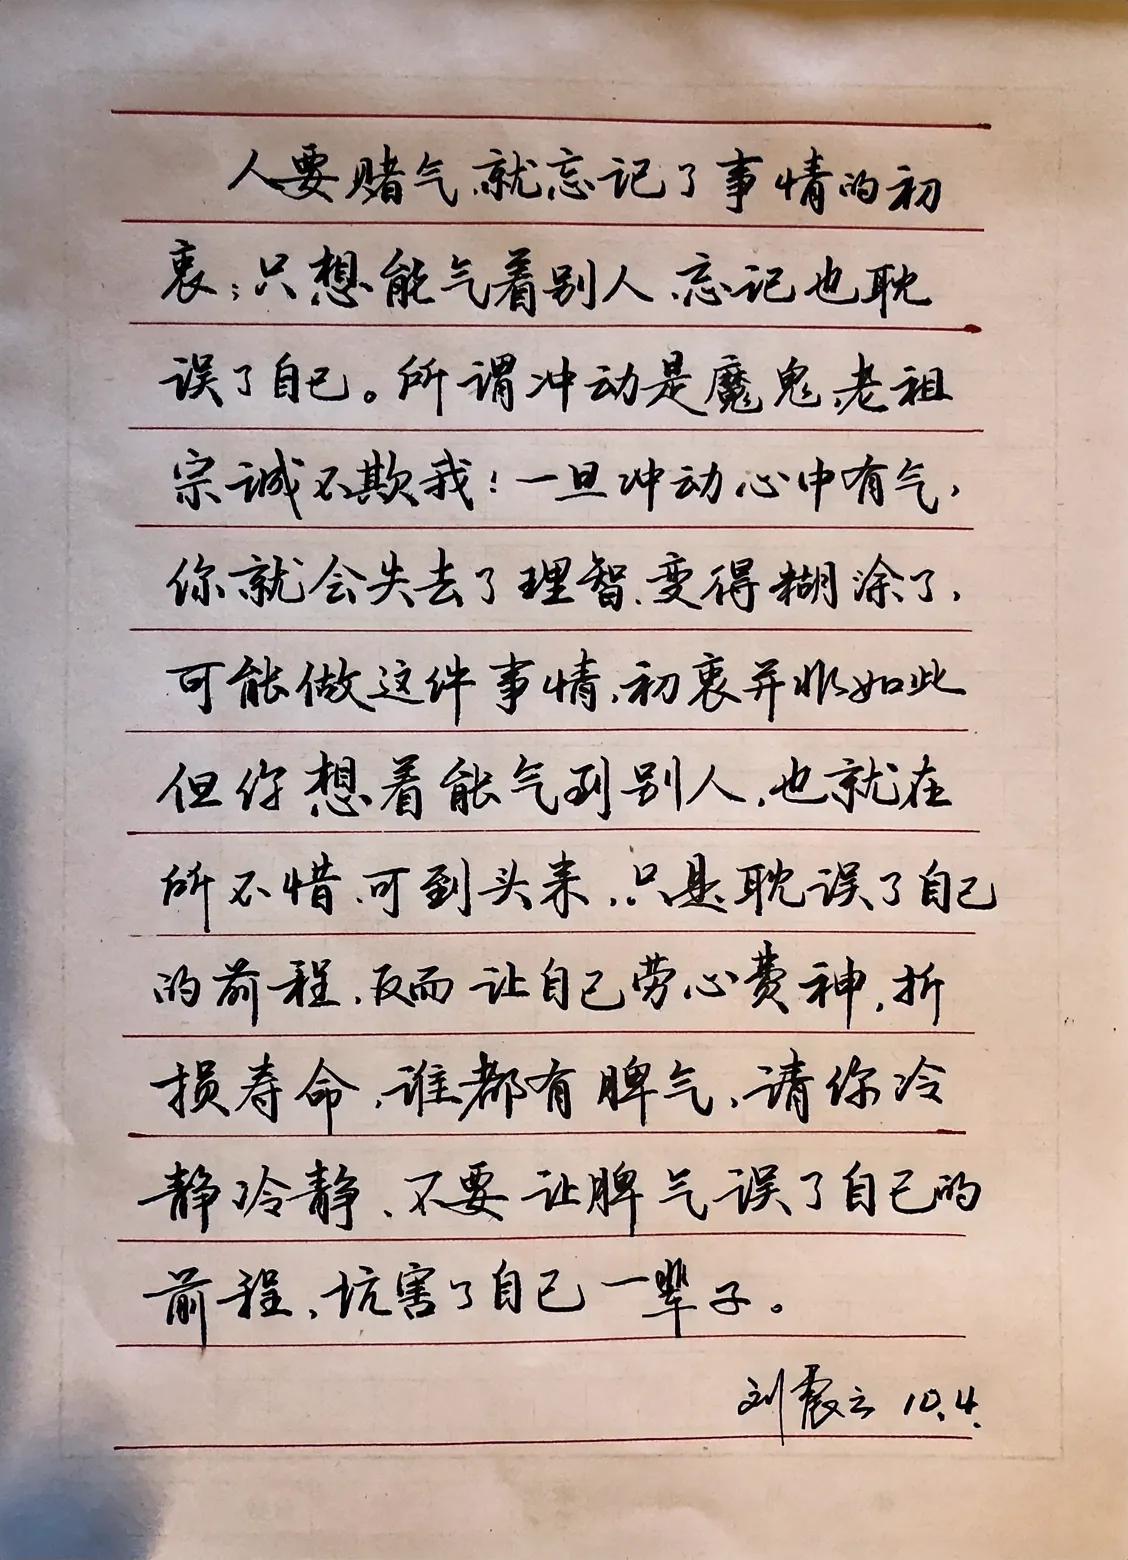 人要赌气,就忘记了事情的初
衷;只想能气着别人,忘记也耽
误了自己。所谓冲动是魔鬼,老祖
宗诚不欺我!一旦冲动心中有气,
你就会失去了理智、变得糊涂了,
可能做这件事情,初衷并非如此
但你想着能气到别人,也就在
所不惜,可到头来,只是耽误了自己
的前程,反而让自己劳心费神,折
损寿命,谁都有脾气,请你冷
静冷静、不要让脾气误了自己的
前程,坑害了自己一辈子。
刘震云 10.4.